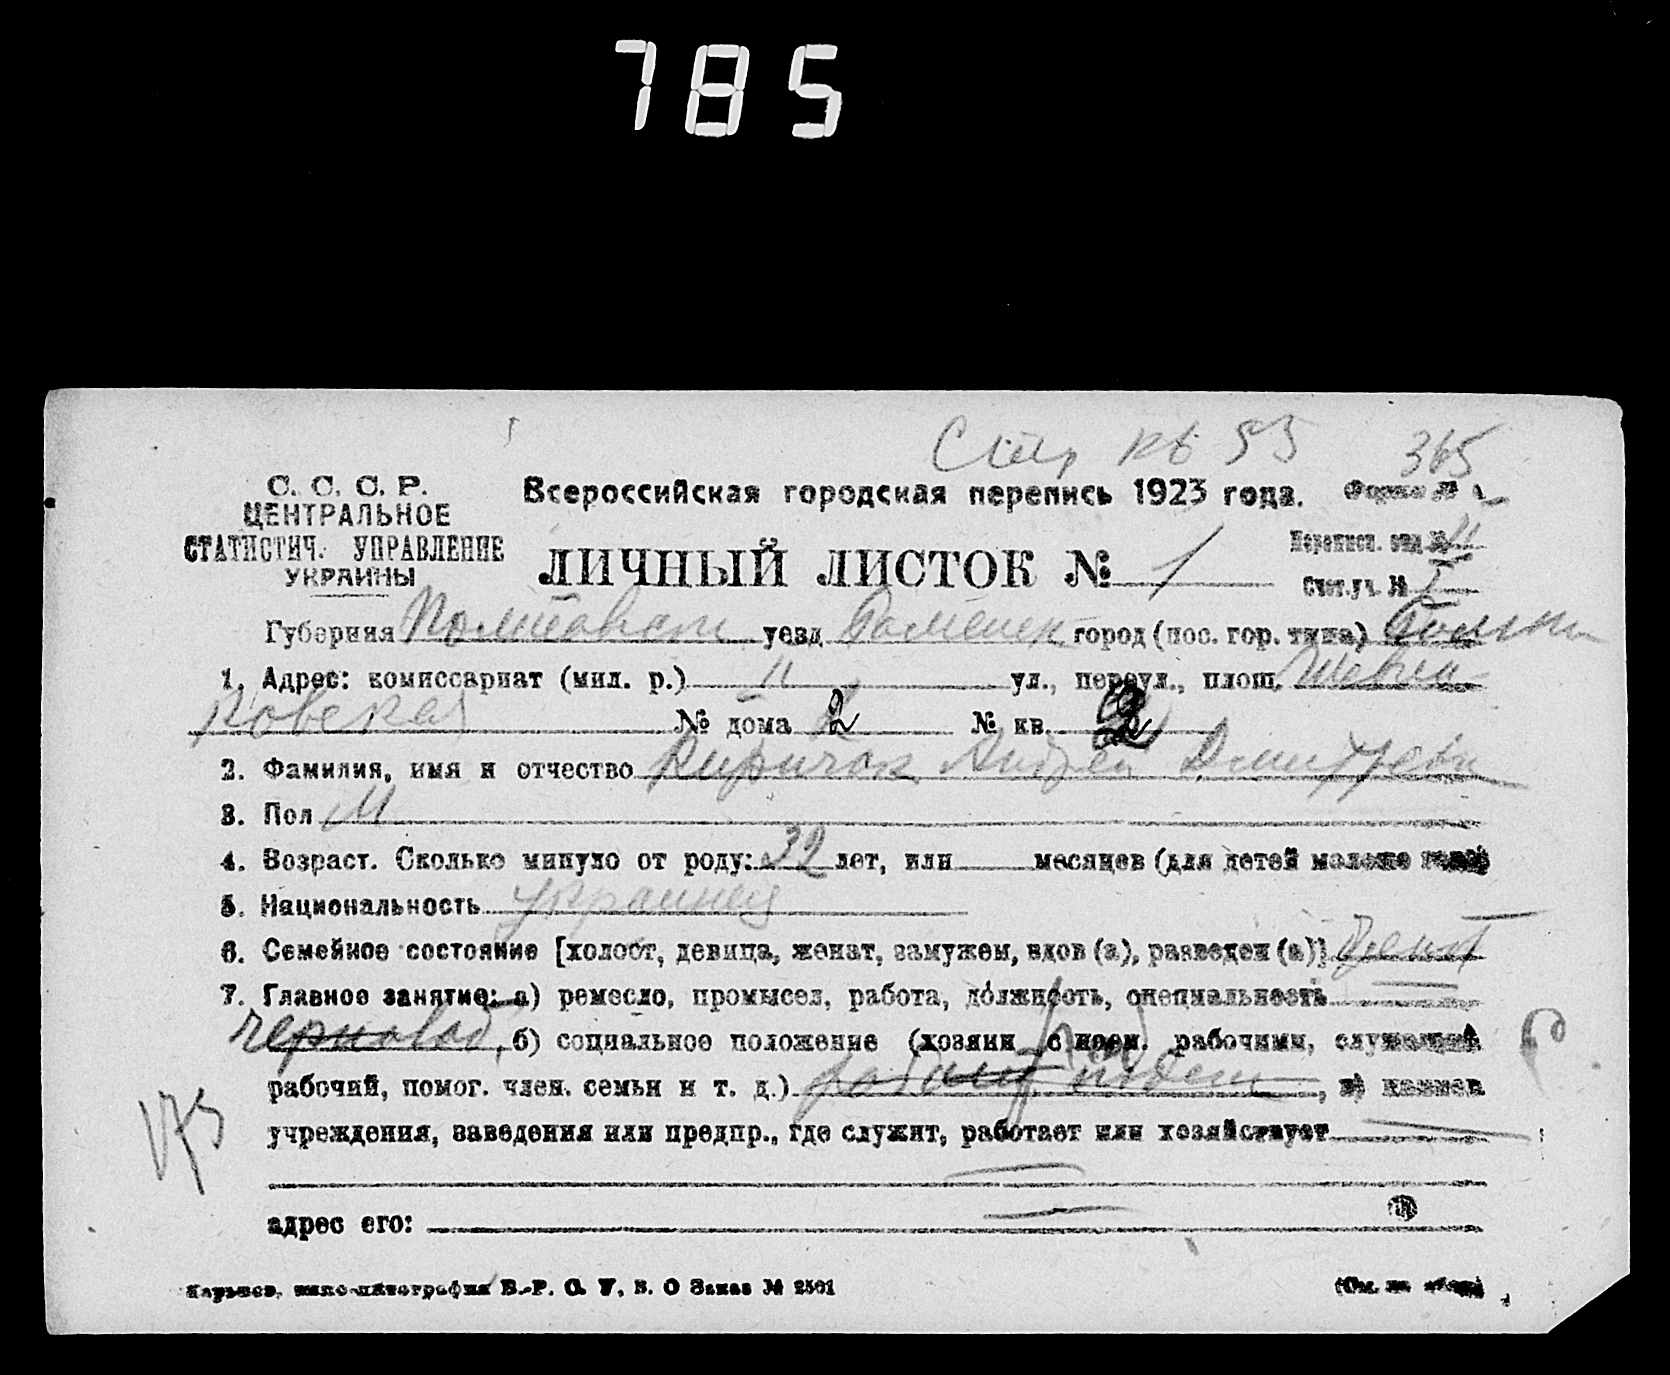 785
Стар кв 53
365
С. С. С. Р.
ЦЕНТРАЛЬНОЕ
СТАТИСТИЧ. УПРАВЛЕНИЕ
УКРАИНЫ
Всероссийская городская перепись 1923 года.
Форма №
ЛИЧНЫЙ ЛИСТОК № 1
Переписн. отд № 11
Счет. уч. № 1
Губерния Полтавская уезд Роменск город (пос. гор. типа) Ромны
1. Адрес: комиссариат (мил. р.) 11 ул., переул., площ. Шевчен
ковская № дома 2 № кв. 2
2. Фамилия, имя и отчество Киричок Андрей Дмитриев
3. Пол М
4. Возраст. Сколько минуло от роду: 32 лет, или месяцев (для детей моложе года)
5. Национальность украинец
6. Семейное состояние [холост, девица, женат, замужем, вдов (а), разведен (а)] женат
7. Главное занятие: а) ремесло, промысел, работа, должность, специальность
чернораб, б) социальное положение (хозяин с наем. рабочими, служащий
рабочий, помог. член. семьи и т. д.)
учреждения, заведения или предпр., где служит, работает или хозяйствует
175
адрес его:
В.-Р. С. У. В. О Заказ № 2501
(См. на обор.)